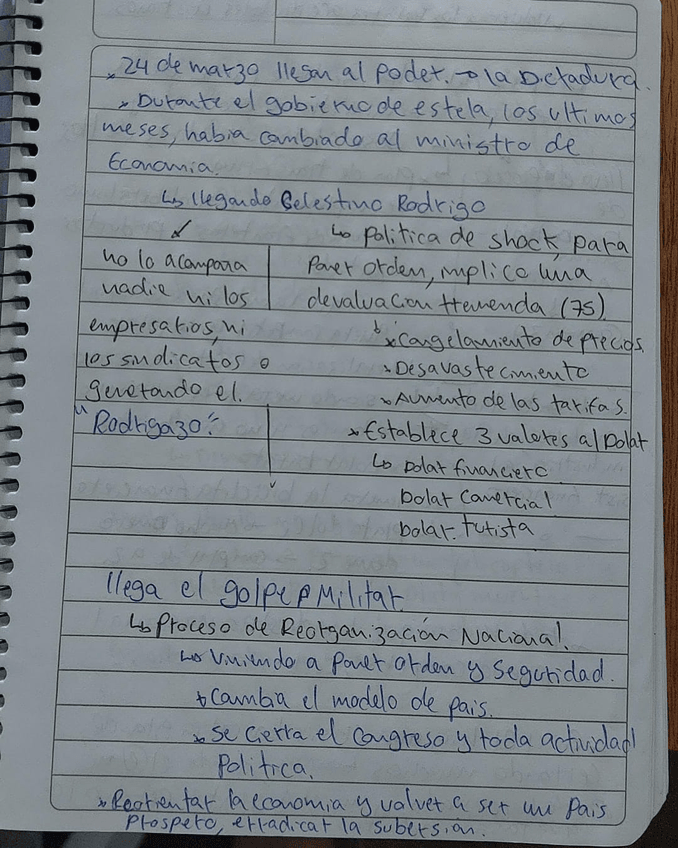 * 24 de marzo llegan al poder. → la Dictadura.
* Durante el gobierno de estela, los ultimos
meses, habia cambiado al ministro de
Economia.
↳ llegando Celestino Rodrigo
↳ Politica de shock, para
Poner orden, implico una
devaluacion tremenda (75)
* Congelamiento de precios.
* Desavastecimiento
* Aumento de las tarifas.
* Establece 3 valores al Dolar
↳ Dolar financiero
Dolar Comercial
Dolar turista
↙
no lo acompaña
nadie ni los
empresarios, ni
los sindicatos o
generando el.
"Rodrigazo".
llega el golpe Militar.
↳ Proceso de Reorganización Nacional.
↳ Viniendo a Poner orden y Seguridad.
* Cambia el modelo de pais.
* Se cierra el congreso y toda actividad
Politica.
* Reorientar la economia y volver a ser un Pais
Prospero, erradicar la subersion.